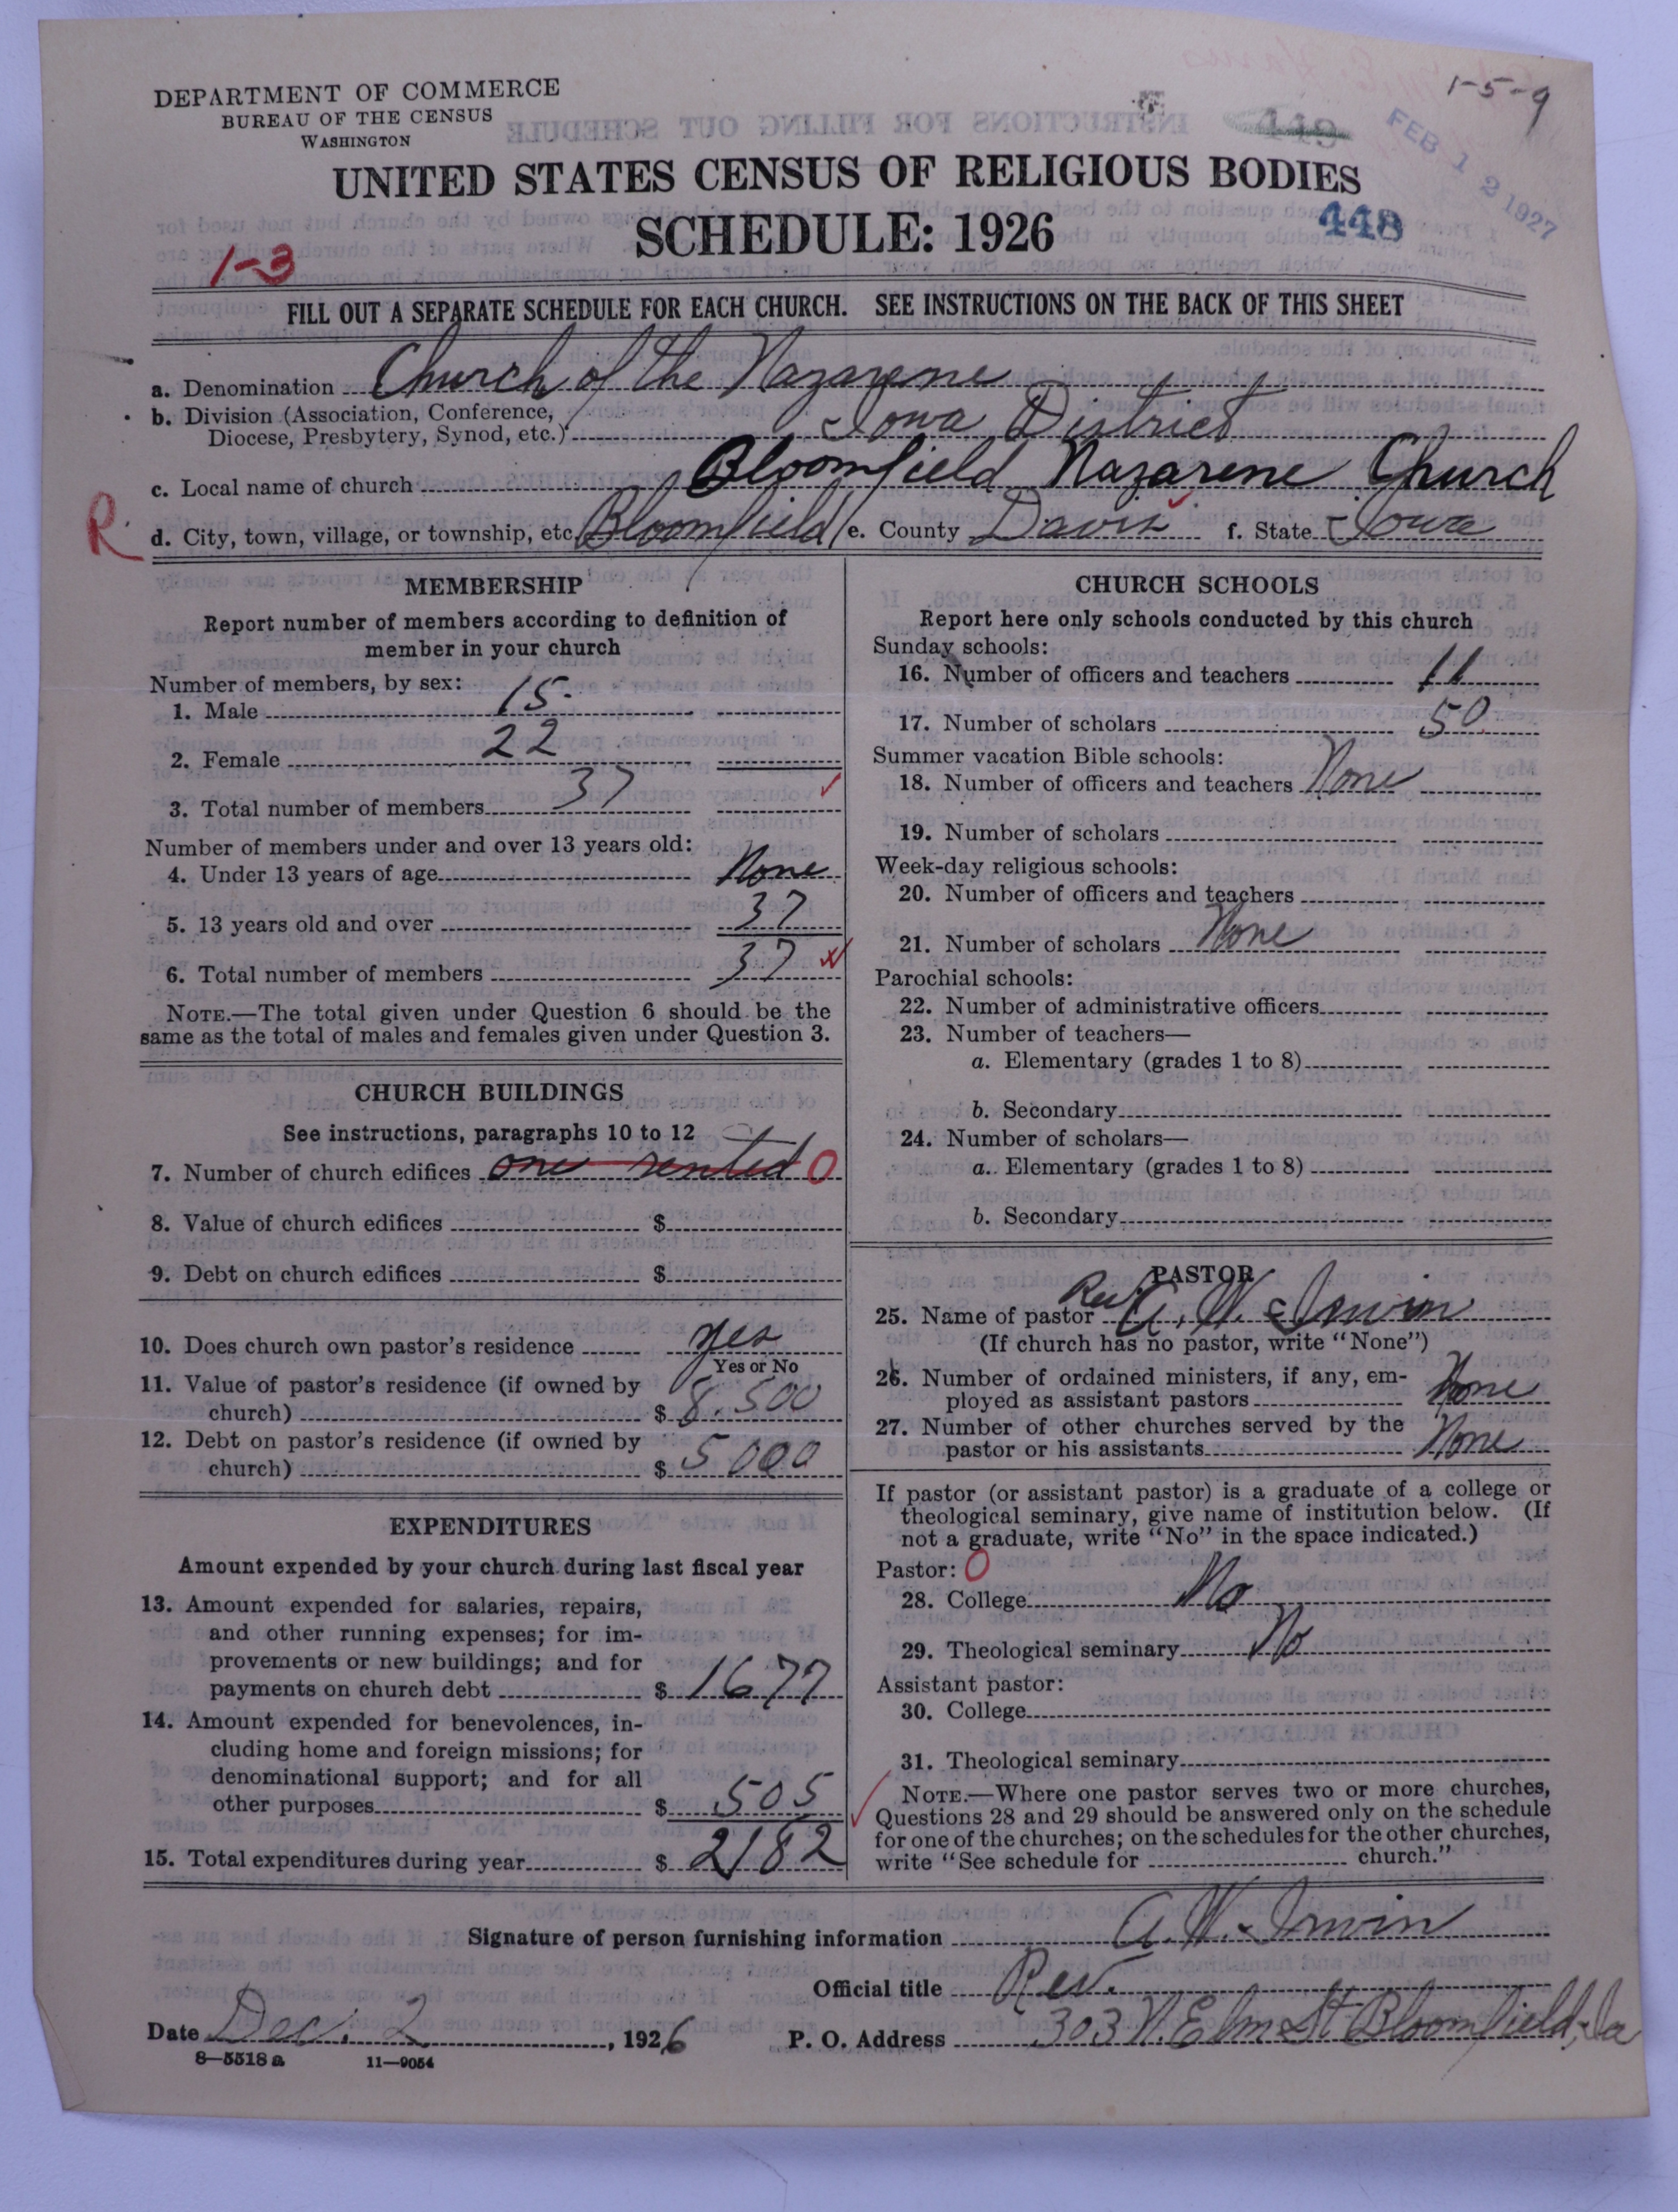 1-5-9
DEPARTMENT OF COMMERCE
BUREAU OF THE CENSUS
WASHINGTON
449
FEB 12 1927
UNITED STATES CENSUS OF RELIGIOUS BODIES
SCHEDULE: 1926
448
1-3
FILL OUT A SEPARATE SCHEDULE FOR EACH CHURCH. SEE INSTRUCTIONS ON THE BACK OF THIS SHEET
a. Denomination Church of the Nazarene
b. Division (Association, Conference,
Diocese, Presbytery, Synod, etc.) Iowa District
c. Local name of church Bloomfield Nazarene Church
R
d. City, town, village, or township, etc. Bloomfield e. County Davis f. State Iowa
MEMBERSHIP
Report number of members according to definition of
member in your church
Number of members, by sex:
1. Male 15
2. Female 22
3. Total number of members 37
Number of members under and over 13 years old:
4. Under 13 years of age None
5. 13 years old and over 37
6. Total number of members 37
NOTE.—The total given under Question 6 should be the
same as the total of males and females given under Question 3.
CHURCH BUILDINGS
See instructions, paragraphs 10 to 12
7. Number of church edifices one rented 0
8. Value of church edifices $
9. Debt on church edifices $
10. Does church own pastor's residence yes
Yes or No
11. Value of pastor's residence (if owned by
church) $ 8.500
12. Debt on pastor's residence (if owned by
church) $ 5000
EXPENDITURES
Amount expended by your church during last fiscal year
13. Amount expended for salaries, repairs,
and other running expenses; for im-
provements or new buildings; and for
payments on church debt $ 1677
14. Amount expended for benevolences, in-
cluding home and foreign missions; for
denominational support; and for all
other purposes $ 505
15. Total expenditures during year $ 2182
CHURCH SCHOOLS
Report here only schools conducted by this church
Sunday schools:
16. Number of officers and teachers 11
17. Number of scholars 50
Summer vacation Bible schools:
18. Number of officers and teachers None
19. Number of scholars
Week-day religious schools:
20. Number of officers and teachers
21. Number of scholars None
Parochial schools:
22. Number of administrative officers
23. Number of teachers—
a. Elementary (grades 1 to 8)
b. Secondary
24. Number of scholars—
a. Elementary (grades 1 to 8)
b. Secondary
PASTOR
25. Name of pastor Rev. A. W. Irwin
(If church has no pastor, write "None")
26. Number of ordained ministers, if any, em-
ployed as assistant pastors None
27. Number of other churches served by the
pastor or his assistants None
If pastor (or assistant pastor) is a graduate of a college or
theological seminary, give name of institution below. (If
not a graduate, write "No" in the space indicated.)
Pastor: 0
28. College No
29. Theological seminary No
Assistant pastor:
30. College
31. Theological seminary
NOTE.—Where one pastor serves two or more churches,
Questions 28 and 29 should be answered only on the schedule
for one of the churches; on the schedules for the other churches,
write "See schedule for church."
Signature of person furnishing information A. W. Irwin
Official title Rev.
Date Dec. 2, 1926 P. O. Address 303 N. Elm St Bloomfield, Ia
8—5518 a 11—9054